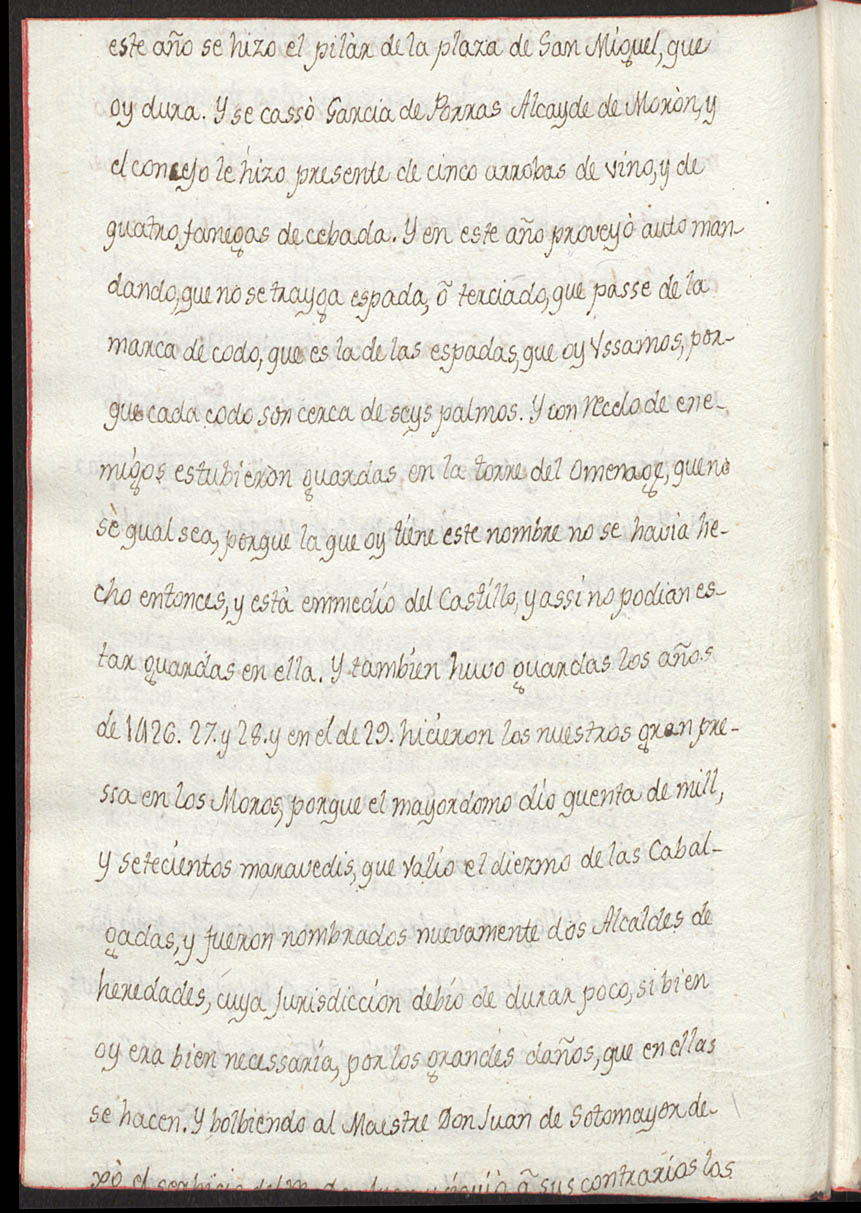 este año se hizo el pilàr de la plaza de San Miguel, que
oy dura. Y se cassò Garcia de Porras Alcayde de Moròn, y
el concejo le hizo presente de cinco arrobas de vino, y de
quatro fanegas de cebada. Y en este año proveyò auto man-
dando, que no se trayga espada, õ terciado, que passe de la
marca de codo, que es la de las espadas, que oy Vssamos, por-
que cada codo son cerca de seys palmos. Y con recelo de ene-
migos estubieron guardas en la torre del Omenage, que no
sè qual sea, porque la que oy tiene este nombre no se havia he-
cho entonces, y està emmedio del Castillo, y assi no podian es-
tar guardas en ella. Y tambien huvo guardas los años
de 1426. 27. y 28. y en el de 29. hicieron los nuestros gran pre-
ssa en los Moros, porque el mayordomo dio quenta de mill,
y setecientos maravedis, que valio el diezmo de las Cabal-
gadas, y fueron nombrados nuevamente dos Alcaldes de
heredades, cuya Jurisdiccion debio de durar poco, si bien
oy era bien necessaria, por los grandes daños, que en ellas
se hacen. Y bolbiendo al Maestre Don Juan de Sotomayor de-
xò el serbicio del sus contrarios los